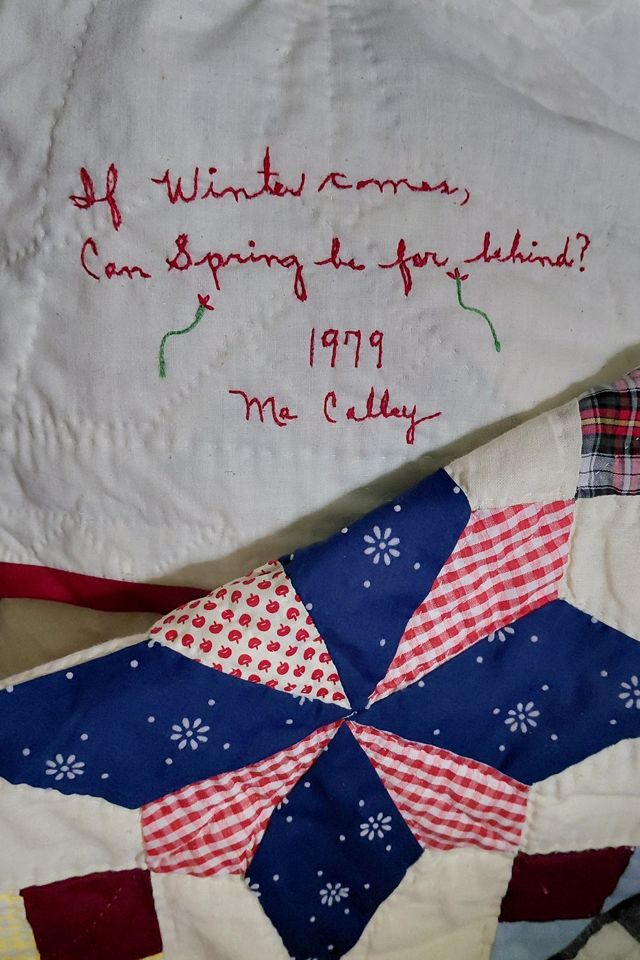 If Winter comes,
Can Spring be far behind?
1979
Ma Calley